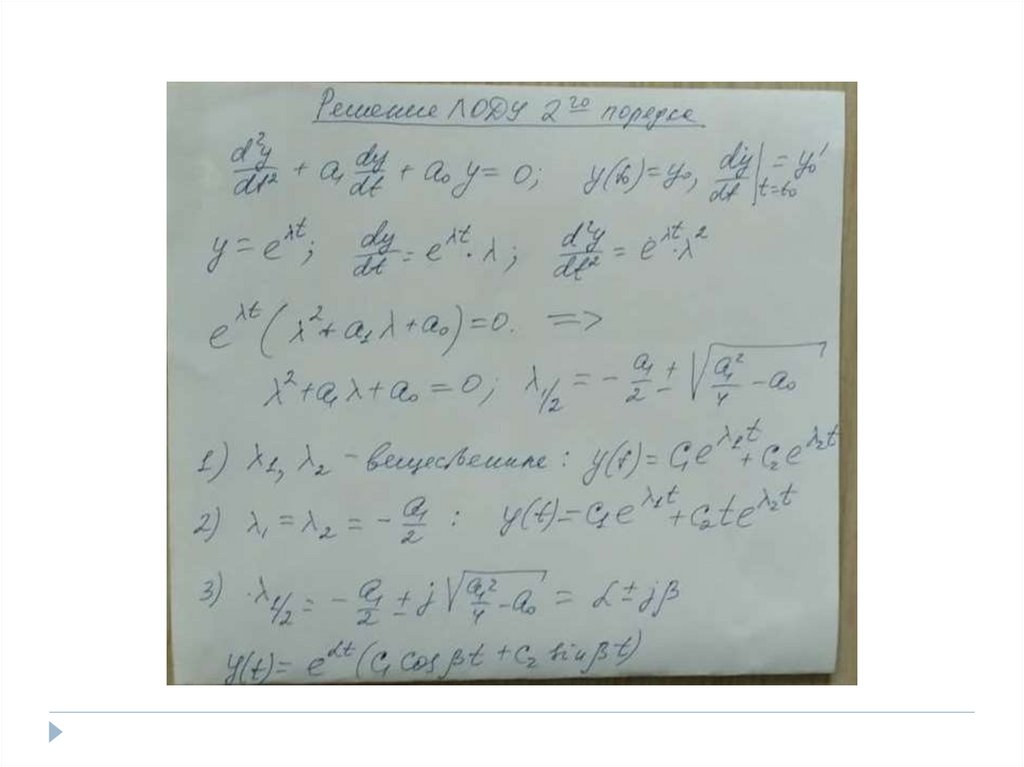 Решение ЛОДУ 2го порядка
d²y/dt² + a₁ dy/dt + a₀ y = 0; y(t₀) = y₀, dy/dt|t=t₀ = y₀'
y = e^λt; dy/dt = e^λt · λ; d²y/dt² = e^λt · λ²
e^λt (λ² + a₁λ + a₀) = 0. =>
λ² + a₁λ + a₀ = 0; λ1/2 = - a₁/2 ± √(a₁²/4 - a₀)
1) λ₁, λ₂ - вещественные: y(t) = C₁e^λ₁t + C₂e^λ₂t
2) λ₁ = λ₂ = - a₁/2 : y(t) = C₁e^λ₁t + C₂te^λ₂t
3) λ1/2 = - a₁/2 ± j √(a₁²/4 - a₀) = α ± jβ
y(t) = e^αt (C₁ cos βt + C₂ sin βt)